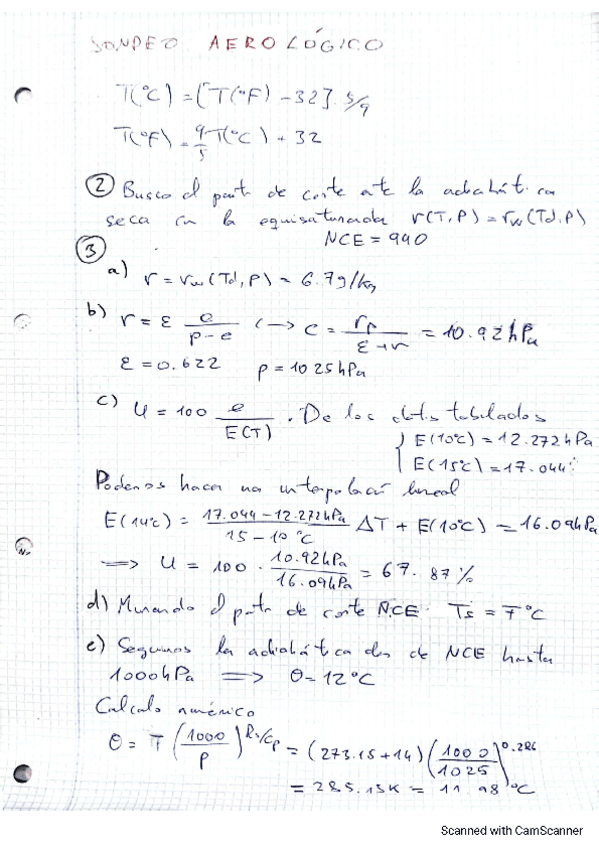 SONDEO AEROLÓGICO
T(°C) = [T(°F) - 32] · 5/9
T(°F) = 9/5 T(°C) + 32
② Busco el punto de corte ate la adiabática
seca con la equisaturada r(T,P) = rw(Td,P)
NCE = 940
③
a) r = rw(Td,P) = 6.7g/kg
b) r = ε e/(p-e) <-> e = rp/(ε+r) = 10.92hPa
ε = 0.622 p = 1025hPa
c) U = 100 e/E(T) . De los datos tabulados
{ E(10°C) = 12.272hPa
E(15°C) = 17.044
Podemos hacer una interpolación lineal
E(14°C) = (17.044-12.272hPa)/(15-10°C) ΔT + E(10°C) = 16.09hPa
=> U = 100 · 10.92hPa/16.09hPa = 67.87%
d) Mirando el punto de corte NCE Ts = 7°C
e) Seguimos la adiabática des de NCE hasta
1000hPa => θ = 12°C
Calculo numérico
θ = T (1000/P)^R/cp = (273.15+14) (1000/1025)^0.286
= 285.13K = 11.98°C
Scanned with CamScanner